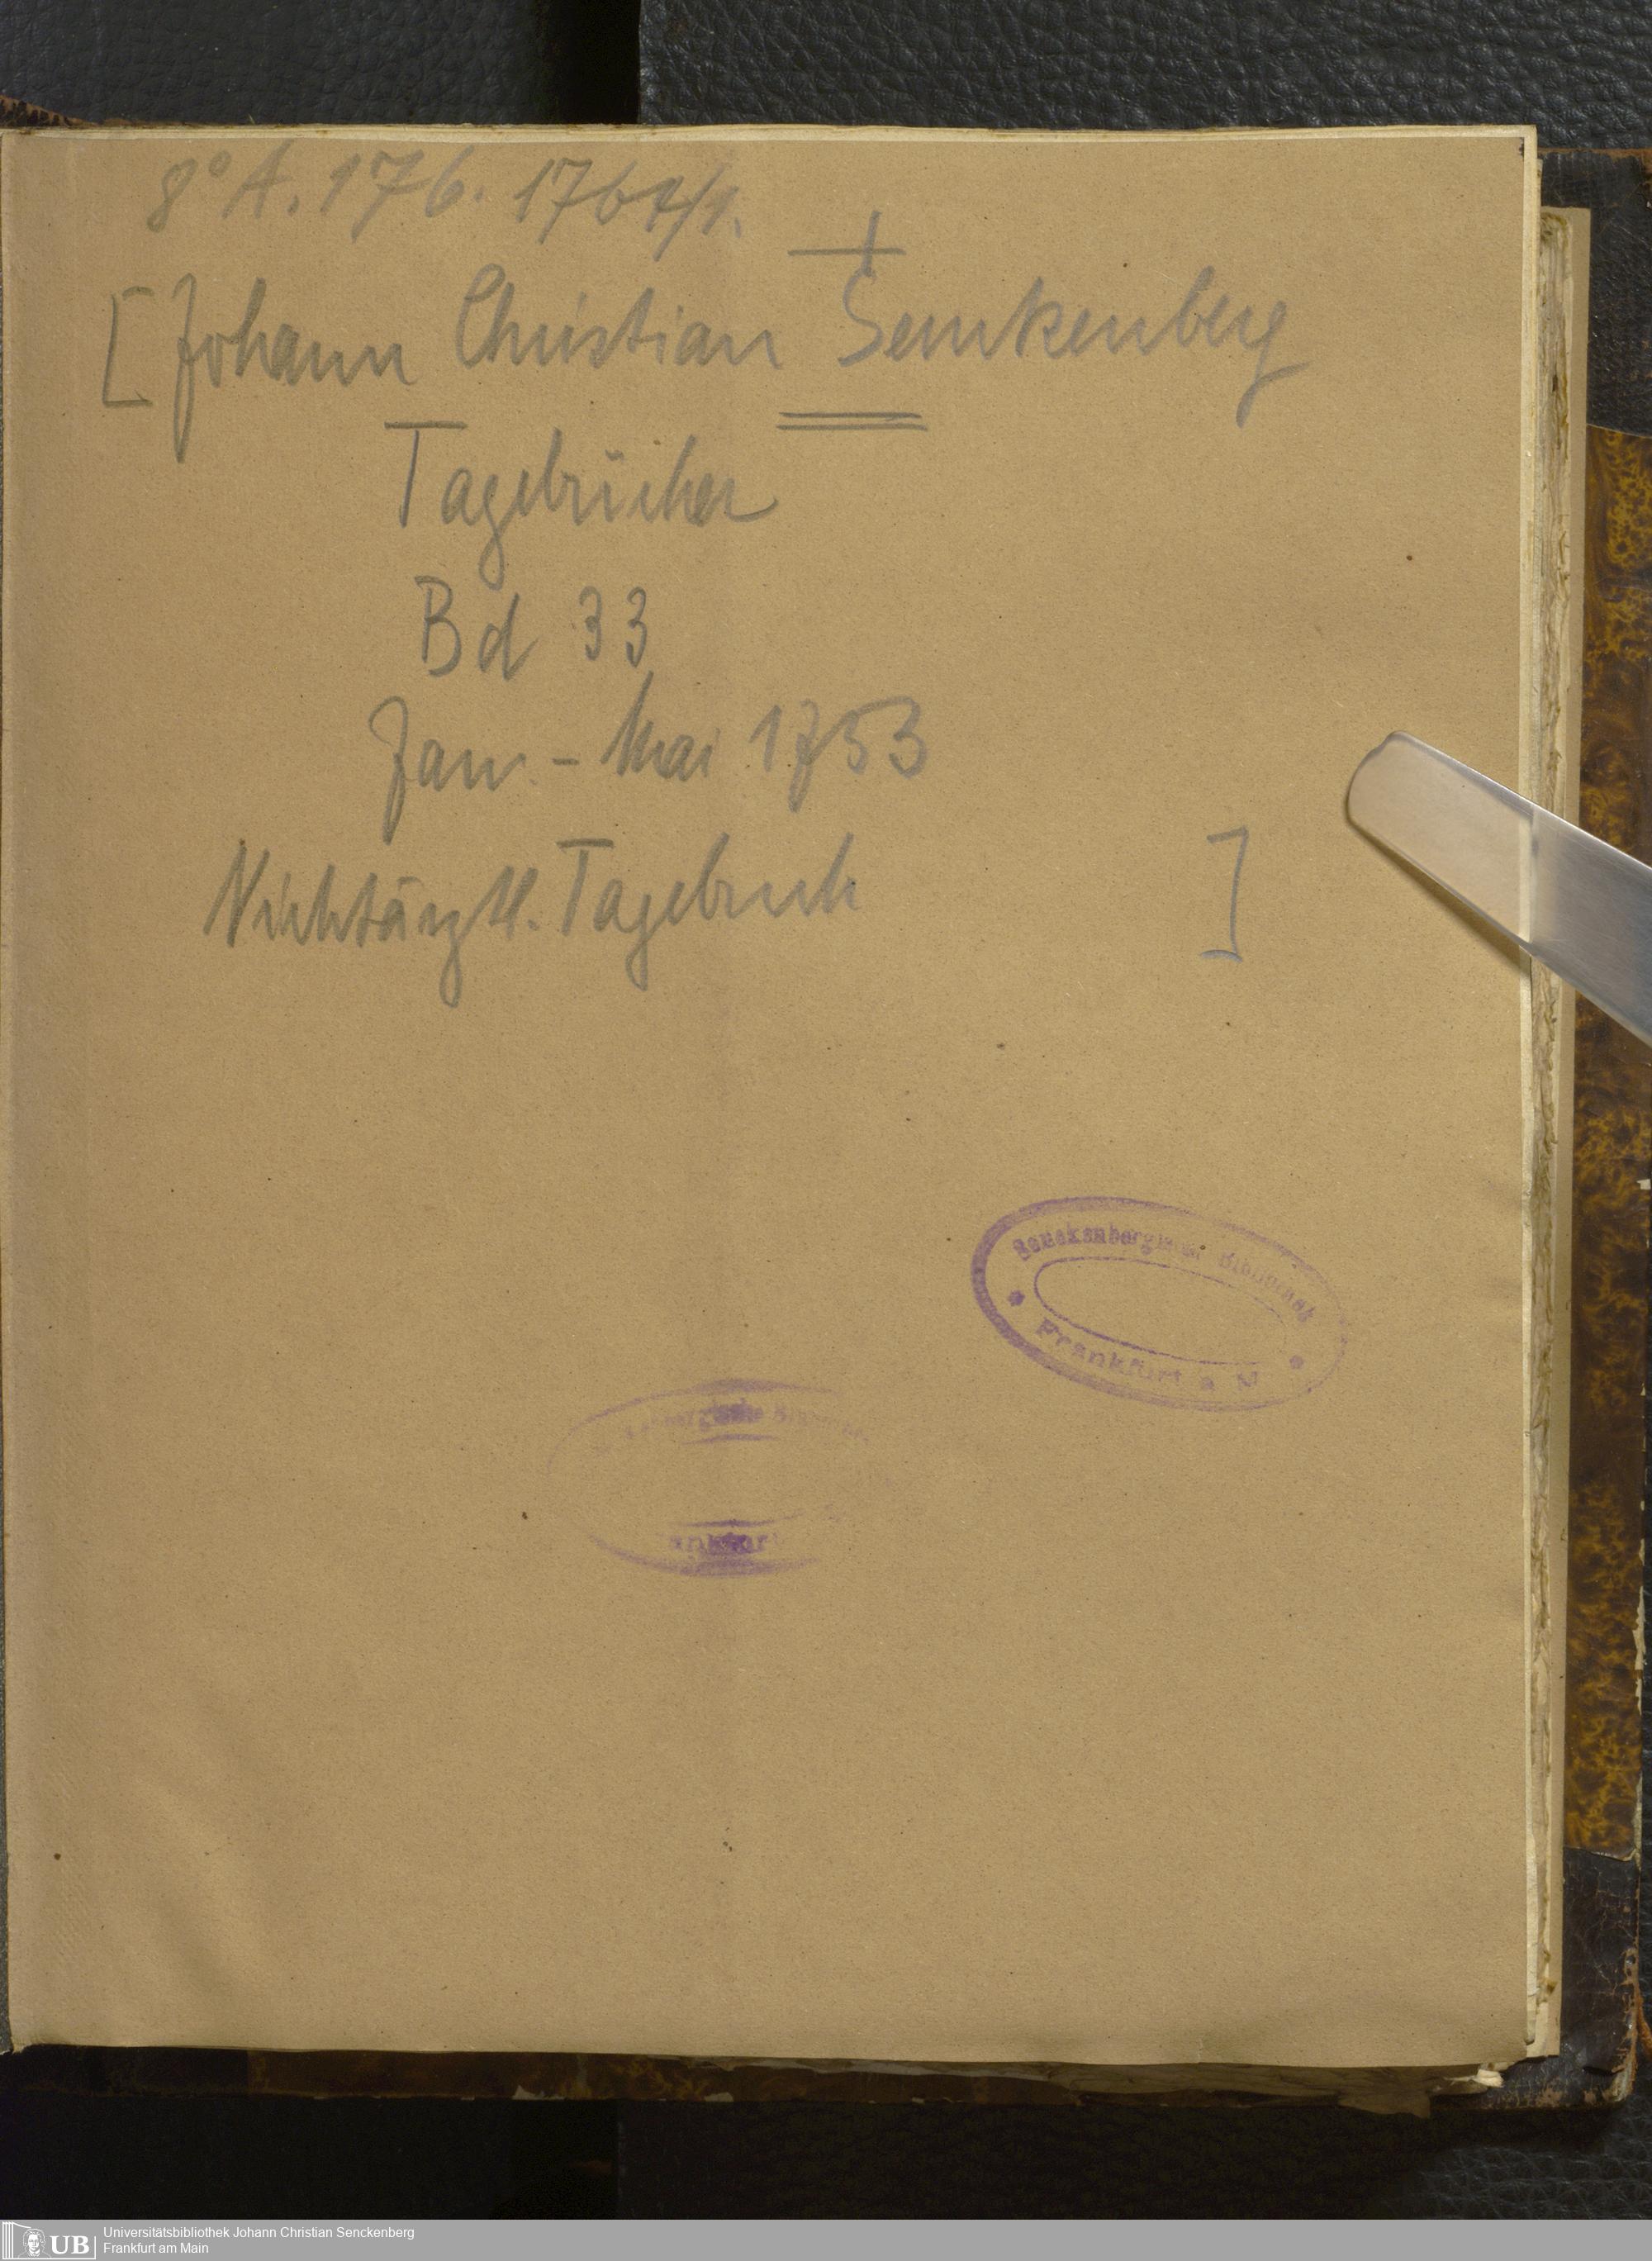 8° A. 176.
[Johann Christian Senckenberg
Tagebücher
Bd 33
Jan. - Mai 1753
Nichtärztl. Tagebuch ]
Senckenbergische Bibliothek
Frankfurt a. M
UB
Universitätsbibliothek Johann Christian Senckenberg
Frankfurt am Main